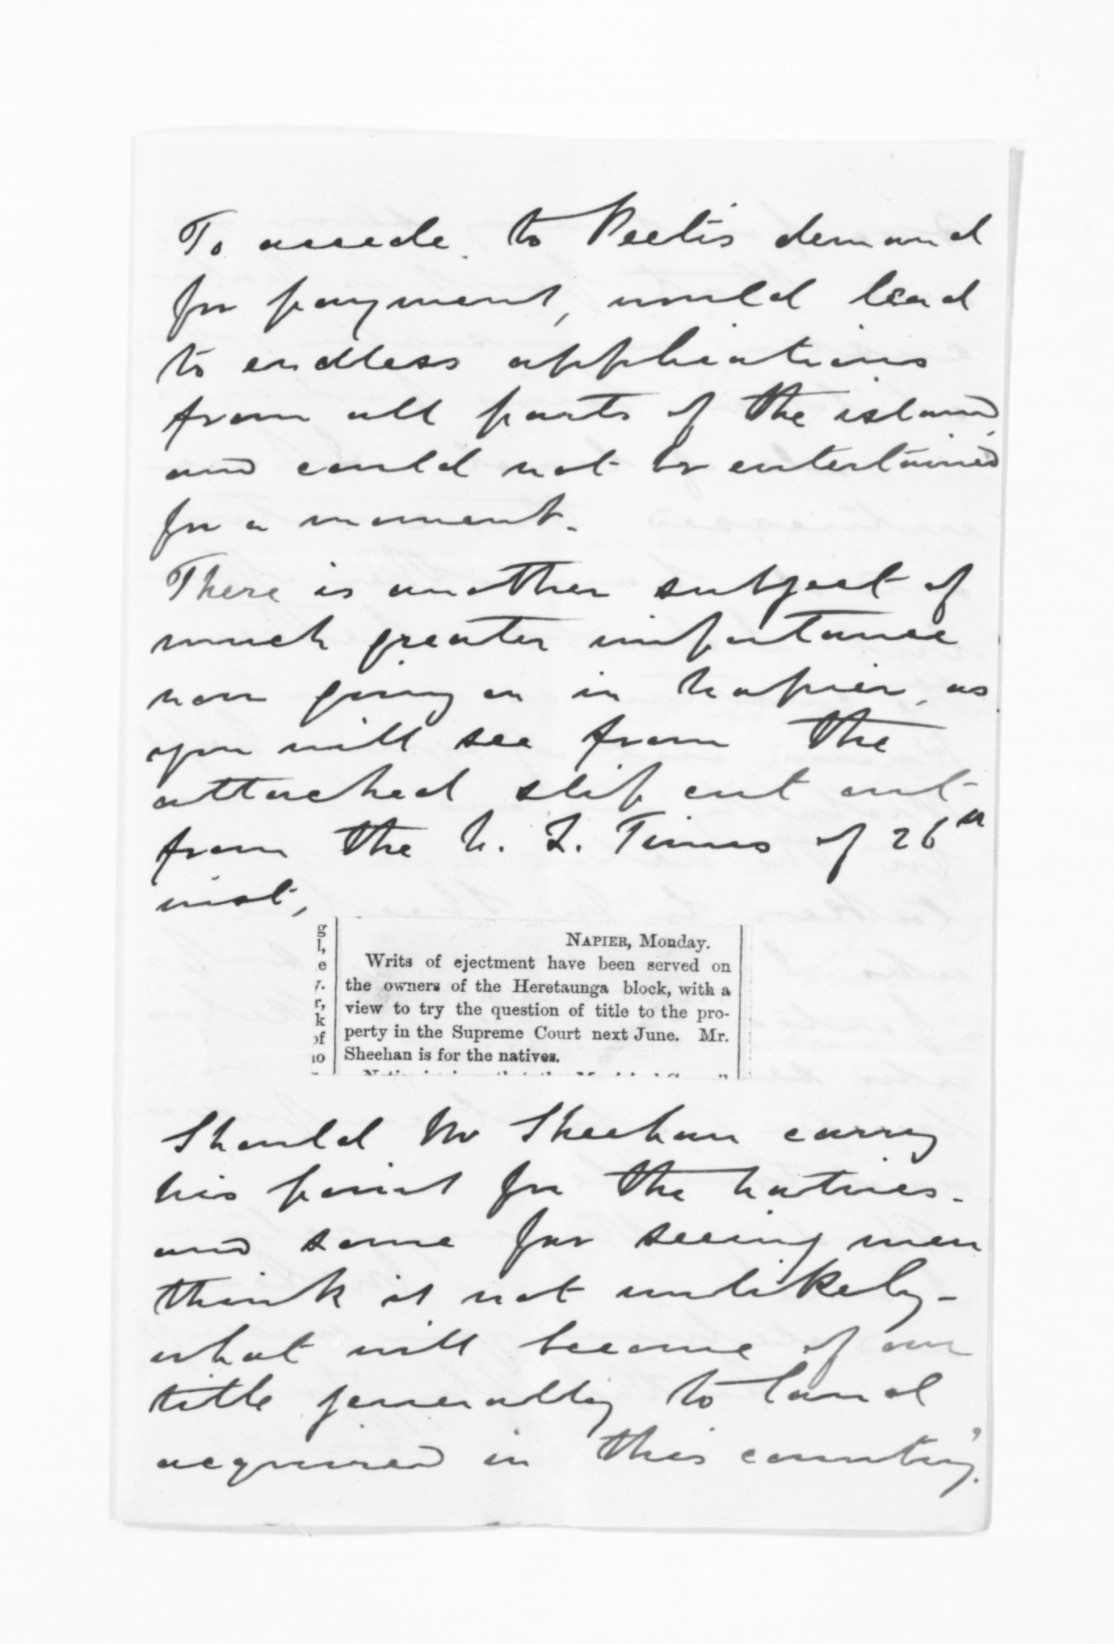 To accede to Peeti's demand
for payment, would lead
to endless applications
from all parts of the island,
and could not be entertained
for a moment.
There is another subject of
much greater importance
now going on in Napier, as
you will see from the
attached slip cut out
from the N. Z. Times of 26th
inst,
NAPIER, Monday.
Writs of ejectment have been served on
the owners of the Heretaunga block, with a
view to try the question of title to the pro-
perty in the Supreme Court next June. Mr.
Sheehan is for the natives.
Should Mr Sheehan carry
his point for the natives -
and some far seeing men
think it not unlikely -
what will become of our
title generally to land
acquired in this country.